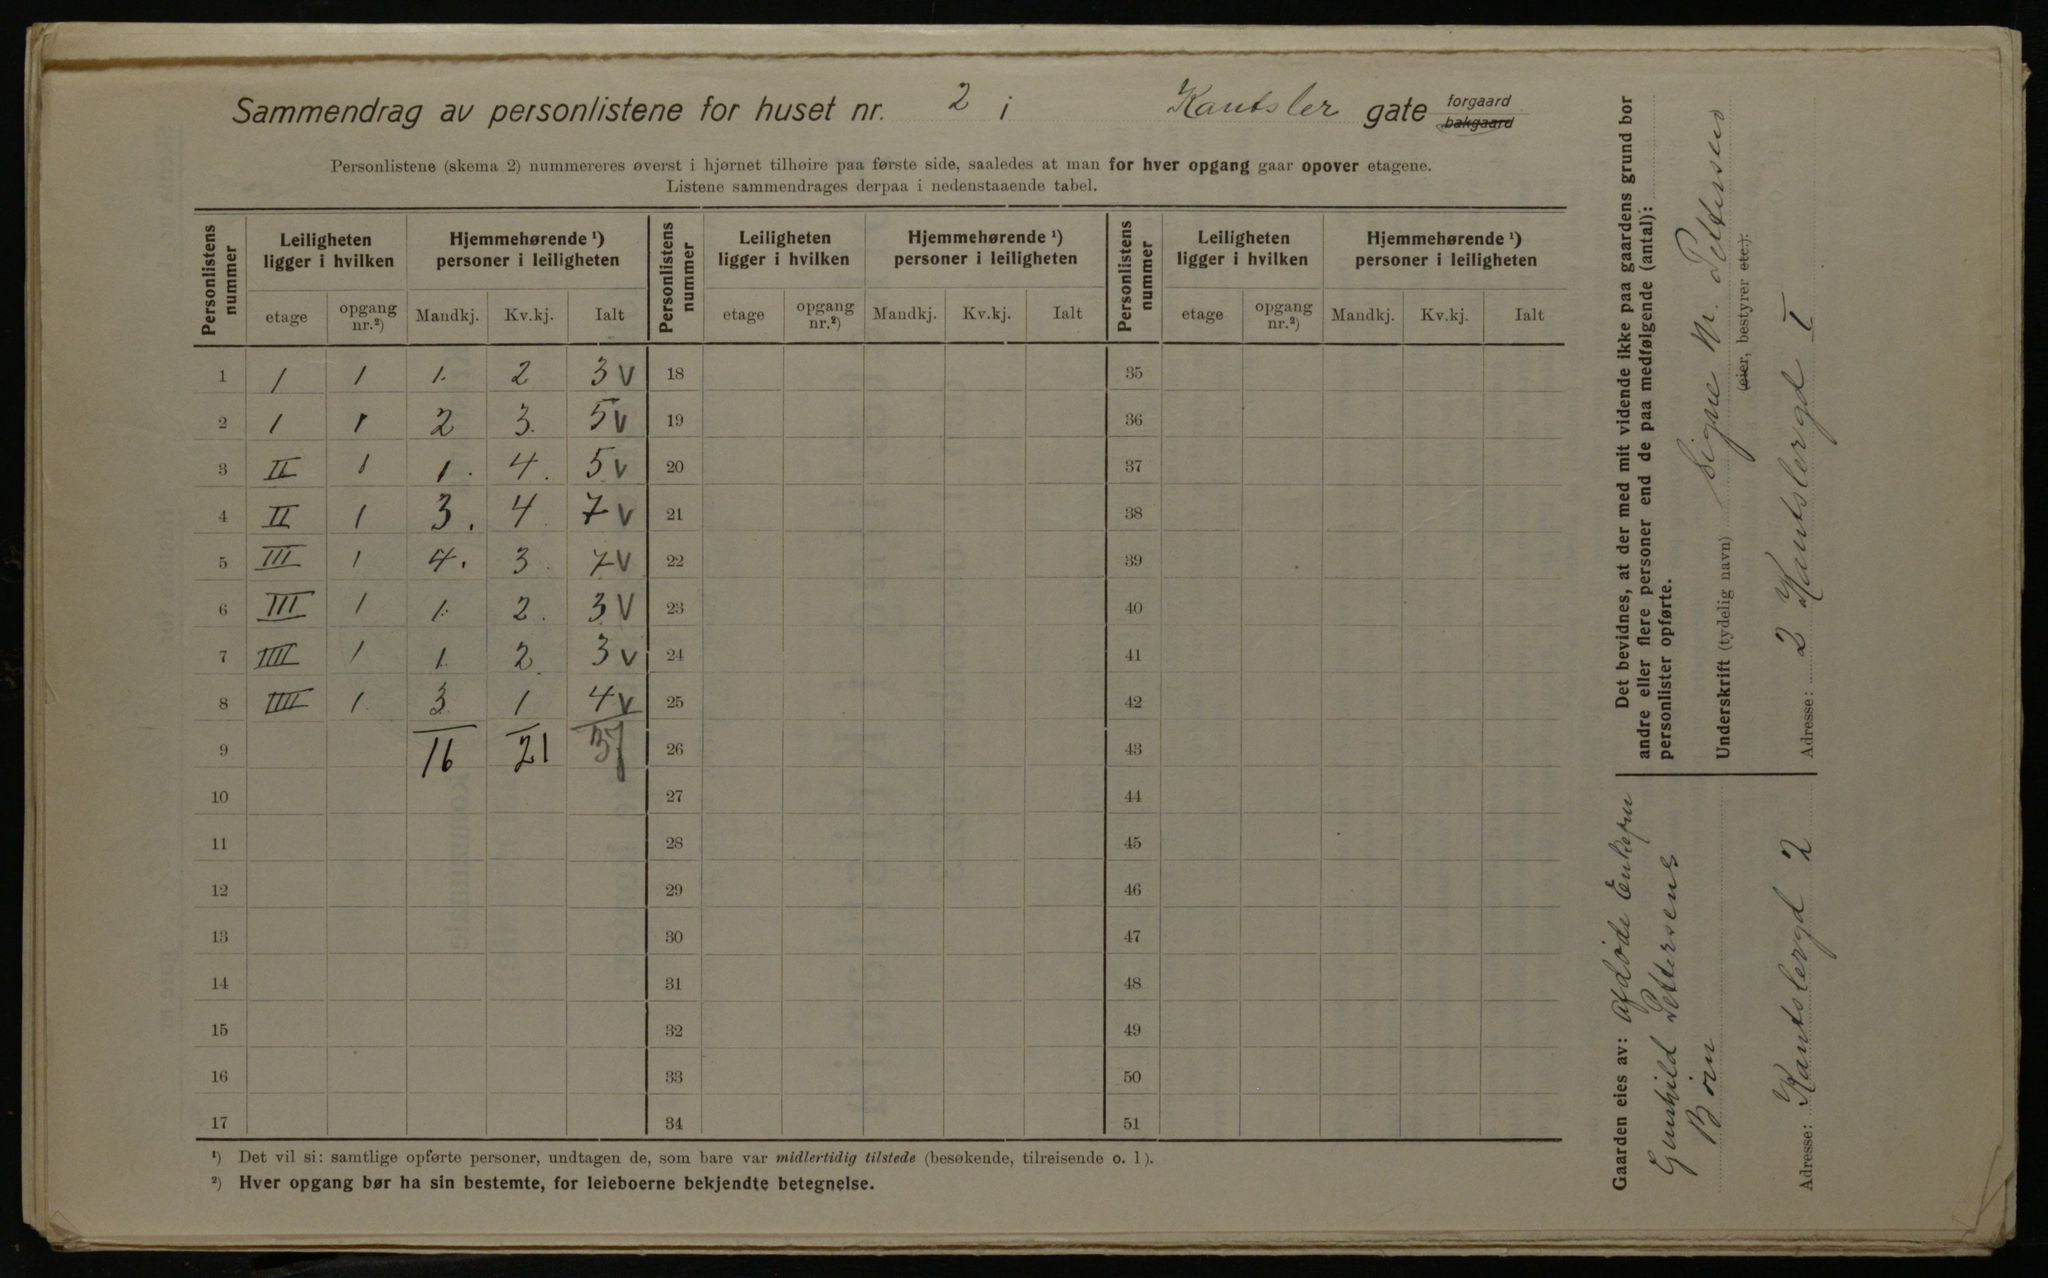 Sammendrag av personlistene for huset nr. 2 i Kantsler gate forgaard bakgaard
Personlistene (skema 2) nummereres øverst i hjørnet tilhøire paa første side, saaledes at man for hver opgang gaar opover etagene.
Listene sammendrages derpaa i nedenstaaende tabel.
Personlistens nummer | Leiligheten ligger i hvilken | Hjemmehørende ¹) personer i leiligheten | Personlistens nummer | Leiligheten ligger i hvilken | Hjemmehørende ¹) personer i leiligheten | Personlistens nummer | Leiligheten ligger i hvilken | Hjemmehørende ¹) personer i leiligheten
etage | opgang nr.²) | Mandkj. | Kv.kj. | Ialt | etage | opgang nr.²) | Mandkj. | Kv.kj. | Ialt | etage | opgang nr.²) | Mandkj. | Kv.kj. | Ialt
1 | 1 | 1 | 1. | 2 | 3 V | 18 | 35
2 | 1 | 1 | 2 | 3. | 5 V | 19 | 36
3 | II | 1 | 1. | 4. | 5 V | 20 | 37
4 | II | 1 | 3. | 4. | 7 V | 21 | 38
5 | III | 1 | 4. | 3. | 7 V | 22 | 39
6 | III | 1 | 1. | 2. | 3 V | 23 | 40
7 | IIII | 1 | 1. | 2. | 3 V | 24 | 41
8 | IIII | 1. | 3. | 1 | 4 V | 25 | 42
9 | 16 | 21 | 37 | 26 | 43
10 | 27 | 44
11 | 28 | 45
12 | 29 | 46
13 | 30 | 47
14 | 31 | 48
15 | 32 | 49
16 | 33 | 50
17 | 34 | 51
¹) Det vil si: samtlige opførte personer, undtagen de, som bare var midlertidig tilstede (besøkende, tilreisende o. l).
²) Hver opgang bør ha sin bestemte, for leieboerne bekjendte betegnelse.
Det bevidnes, at der med mit vidende ikke paa gaardens grund bor
andre eller flere personer end de paa medfølgende (antal):
personlister opførte.
Underskrift (tydelig navn) Signe M. Pettersens
(eier, bestyrer etc.).
Adresse: 2 Kantslergd I
Gaarden eies av: afdøde Enkefru
Gunhild Pettersens
Børn
Adresse: Kantslergd 2